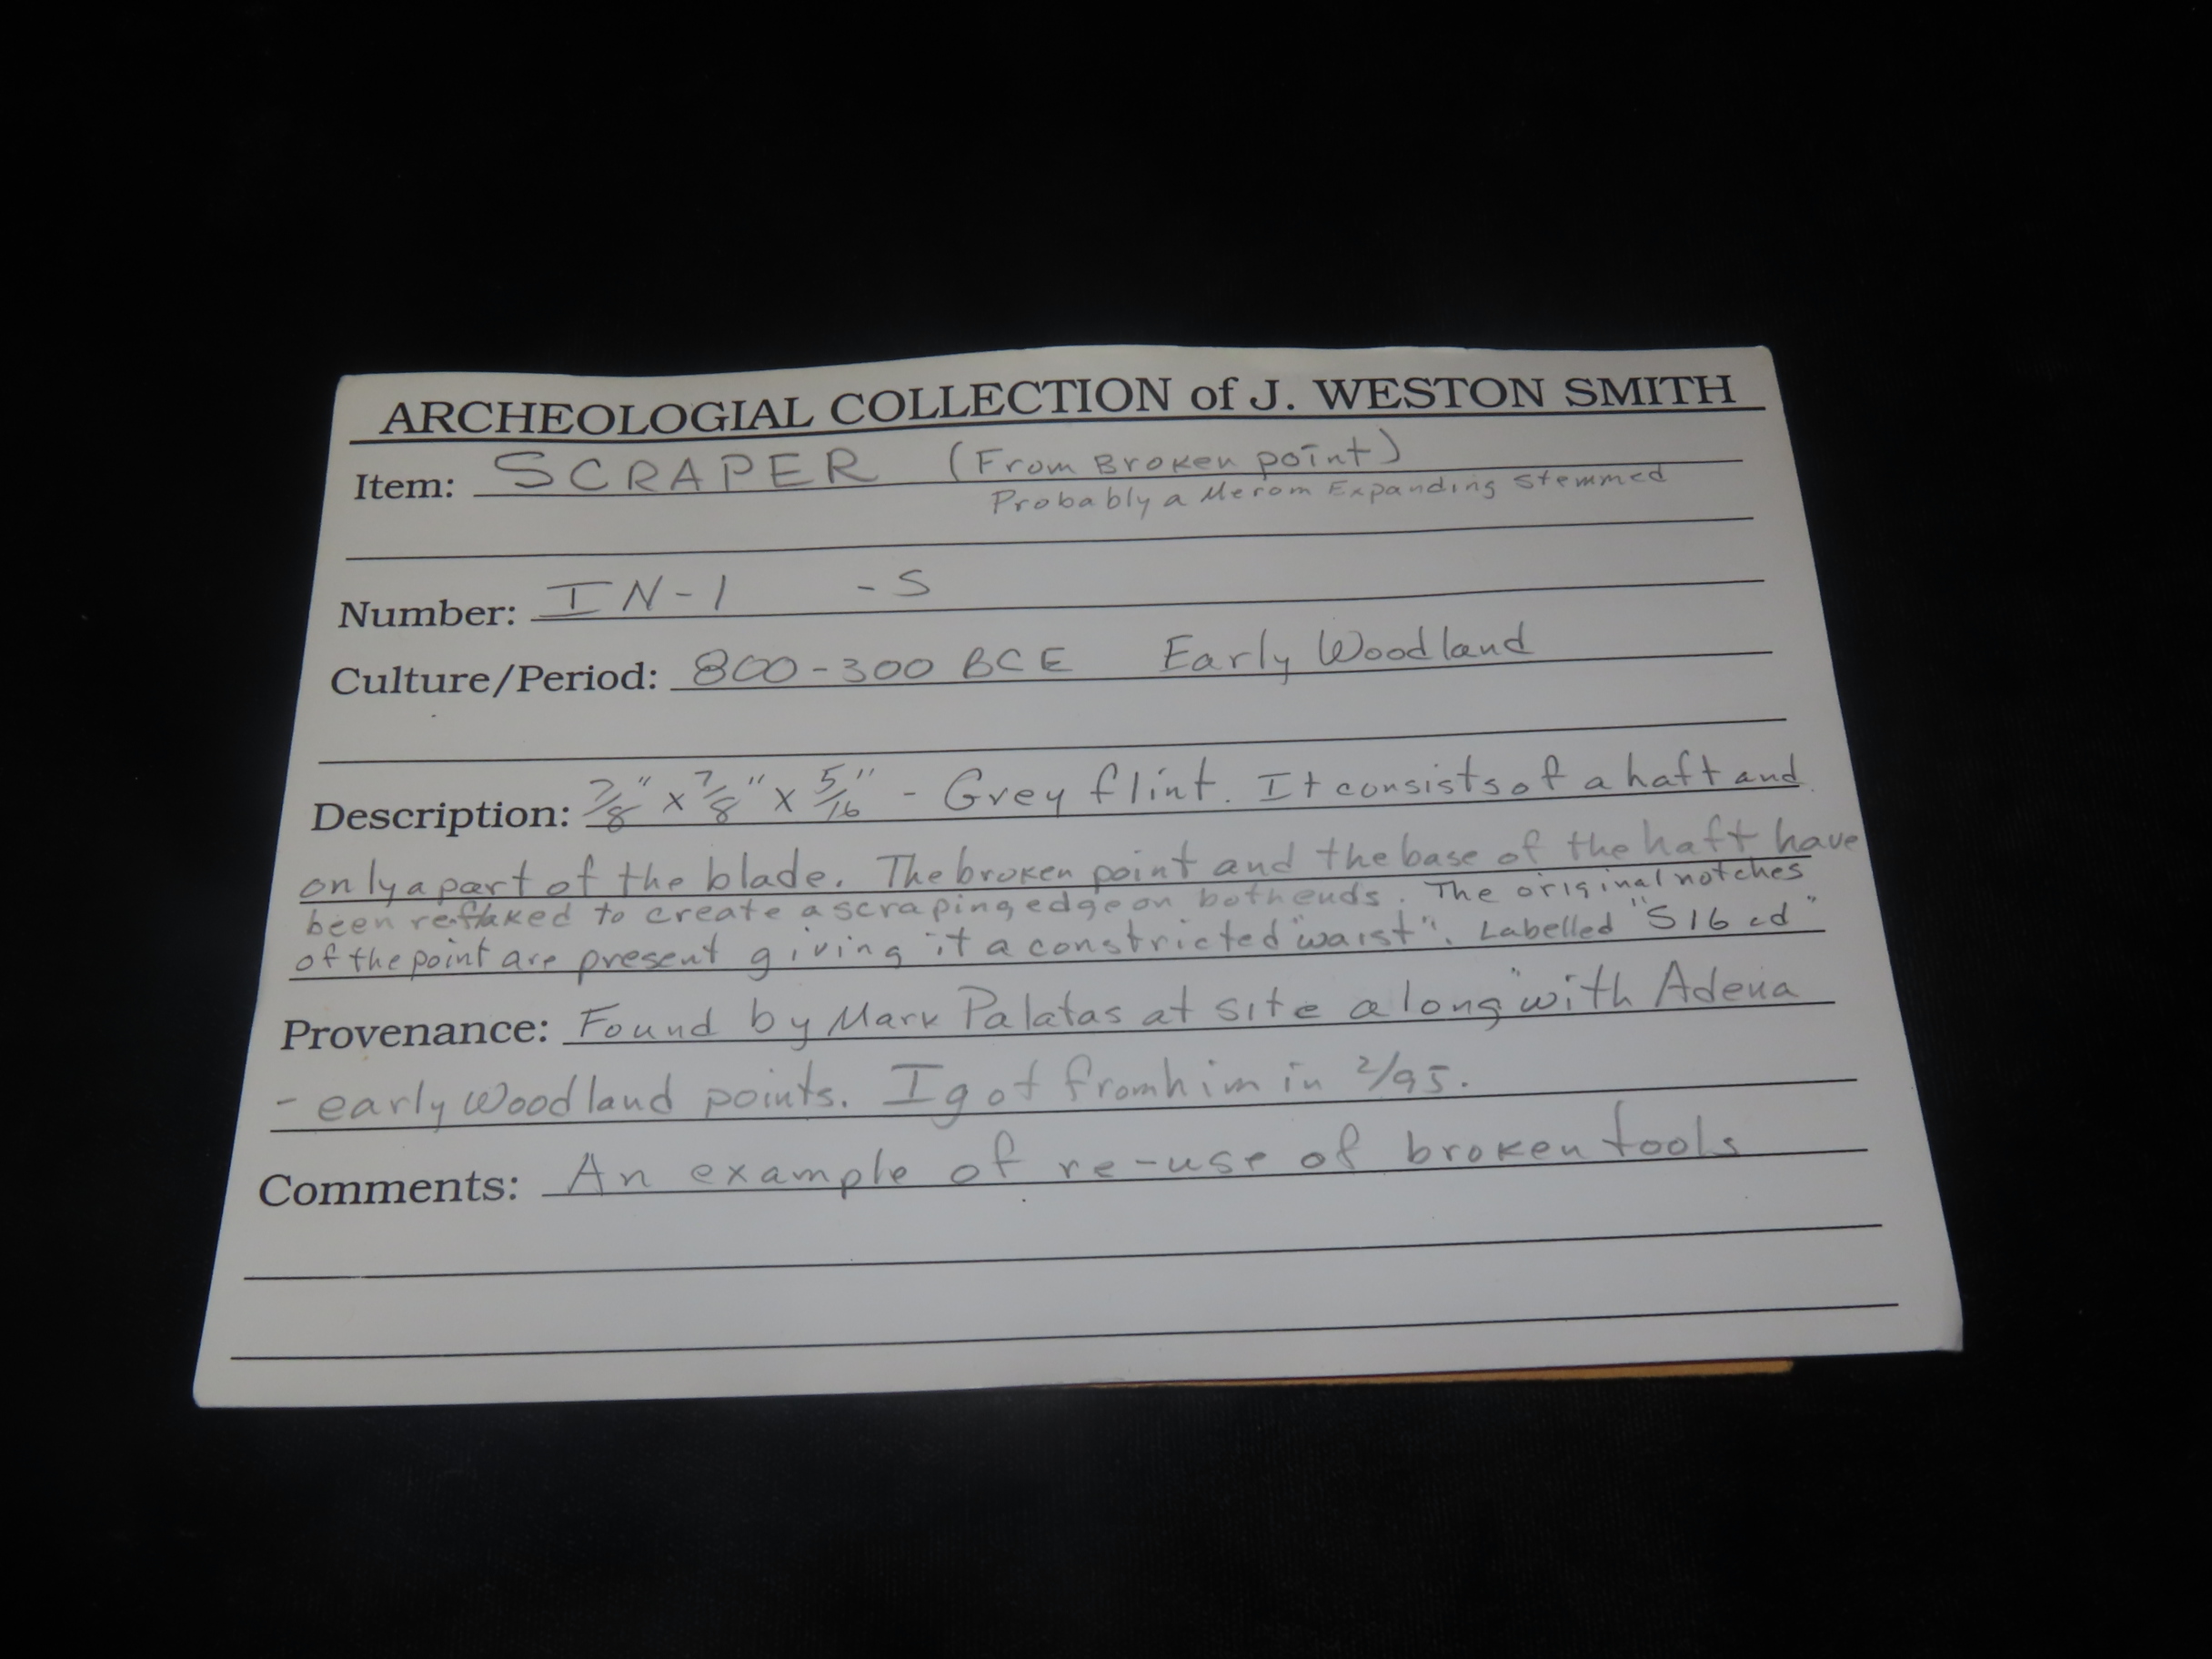 ARCHEOLOGIAL COLLECTION of J. WESTON SMITH
Item: SCRAPER (From Broken point)
Probably a Merom Expanding Stemmed
Number: IN-1 -S
Culture/Period: 800-300 BCE Early Woodland
Description: 7/8" x 7/8" x 5/16" - Grey flint. It consists of a haft and
only a part of the blade. The broken point and the base of the haft have
been reflaked to create a scraping edge on both ends. The original notches
of the point are present giving it a constricted "waist". Labelled "S16 cd"
Provenance: Found by Mark Palatas at site along with Adena
- early Woodland points. I got from him in 2/95.
Comments: An example of re-use of broken tools